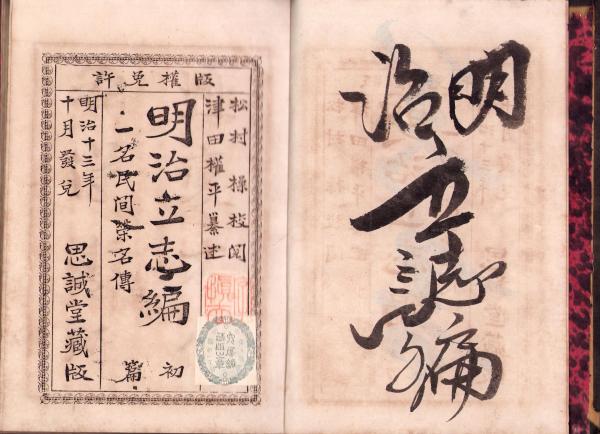 明治立誌編
版權免許
松村操校閲
津田權平纂述
明治立志編
初篇
一名民間榮名傳
明治十三年
十月發兌
思誠堂藏版